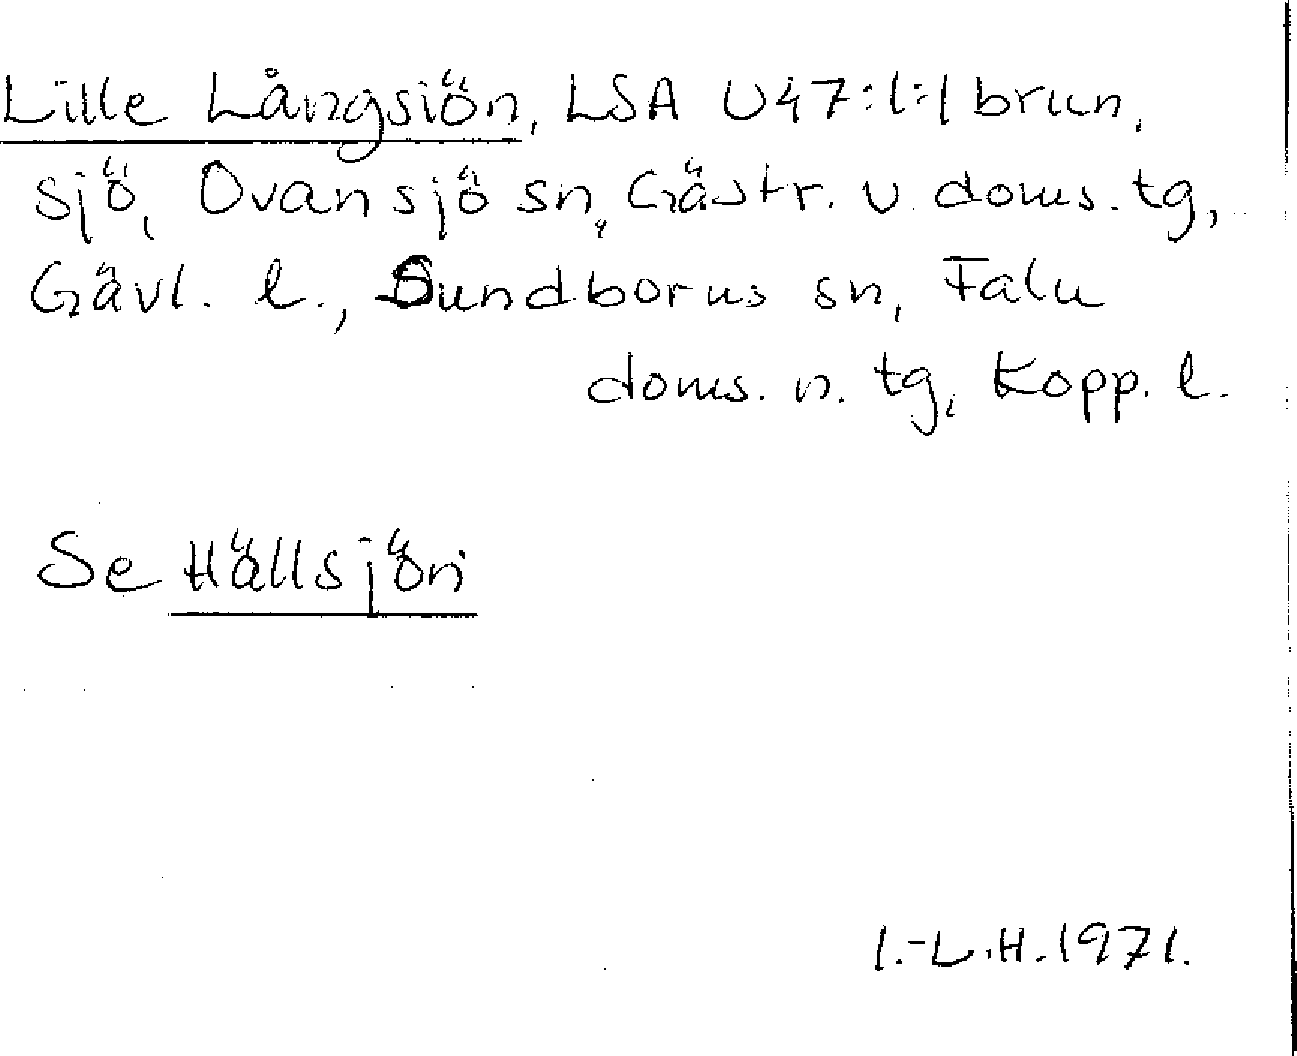 Lille Långsiön, LSA U47:1:1 brun,
sjö, Ovansjö sn, Gästr. v. doms. tg,
Gävl. l., Sundborns sn, Falu
doms. n. tg, Kopp. l.
Se Hällsjön
I.-L.H. 1971.